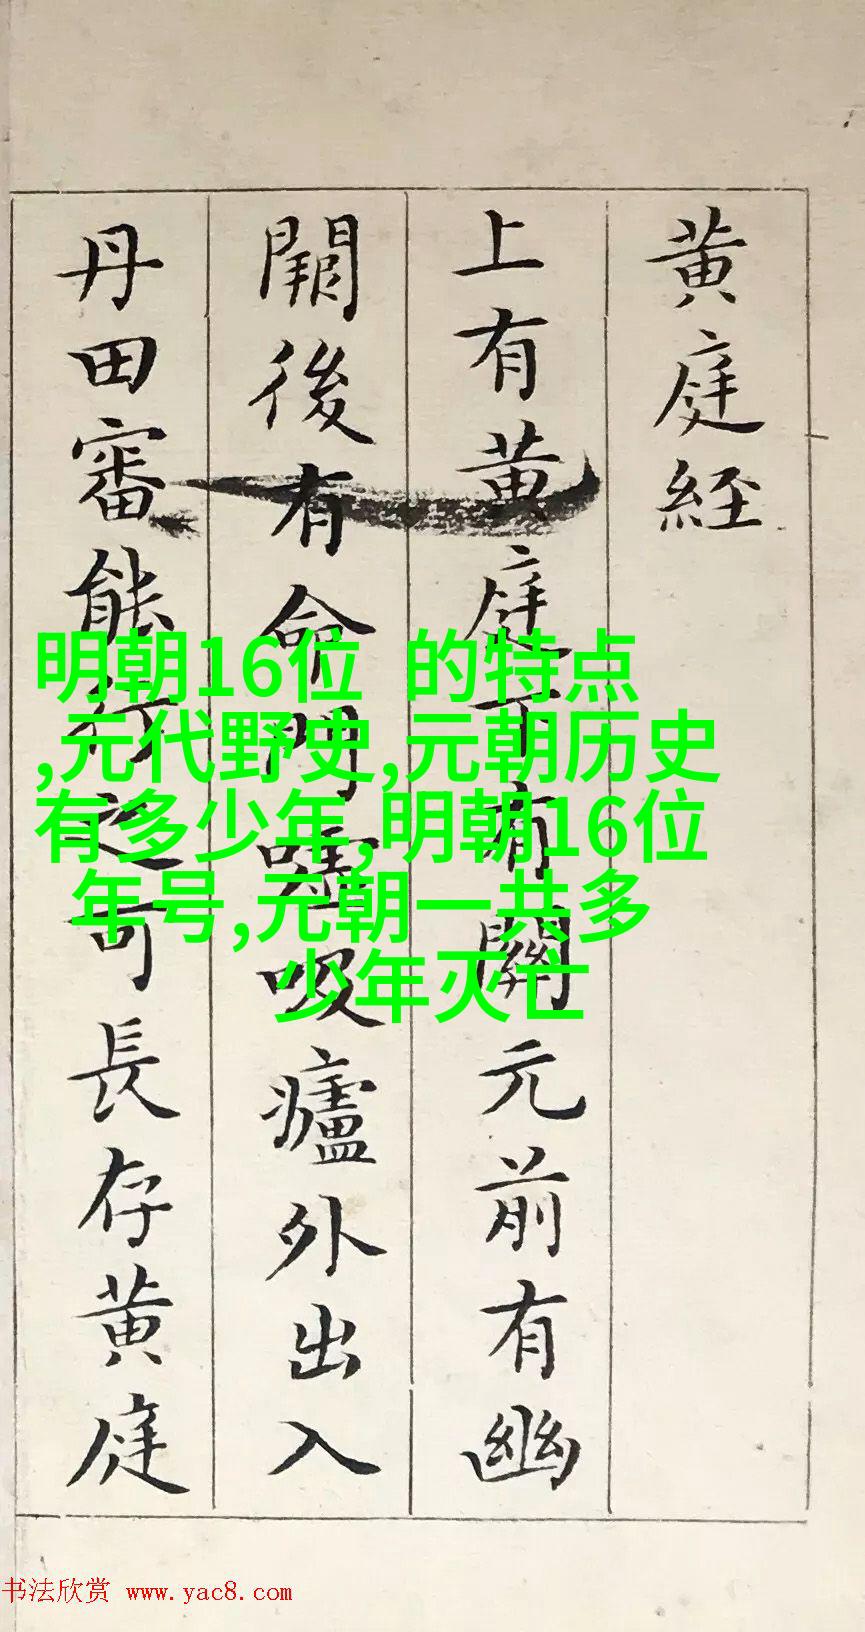 黄庭経
上有黄庭下有關元前有幽
闕後有命門嘘吸廬外出入
丹田審能行之可長存黄庭
明朝16位 的特点
,元代野史,元朝历史
有多少年,明朝16位
年号,元朝一共多
少年灭亡
书法欣赏 www.yac8.com